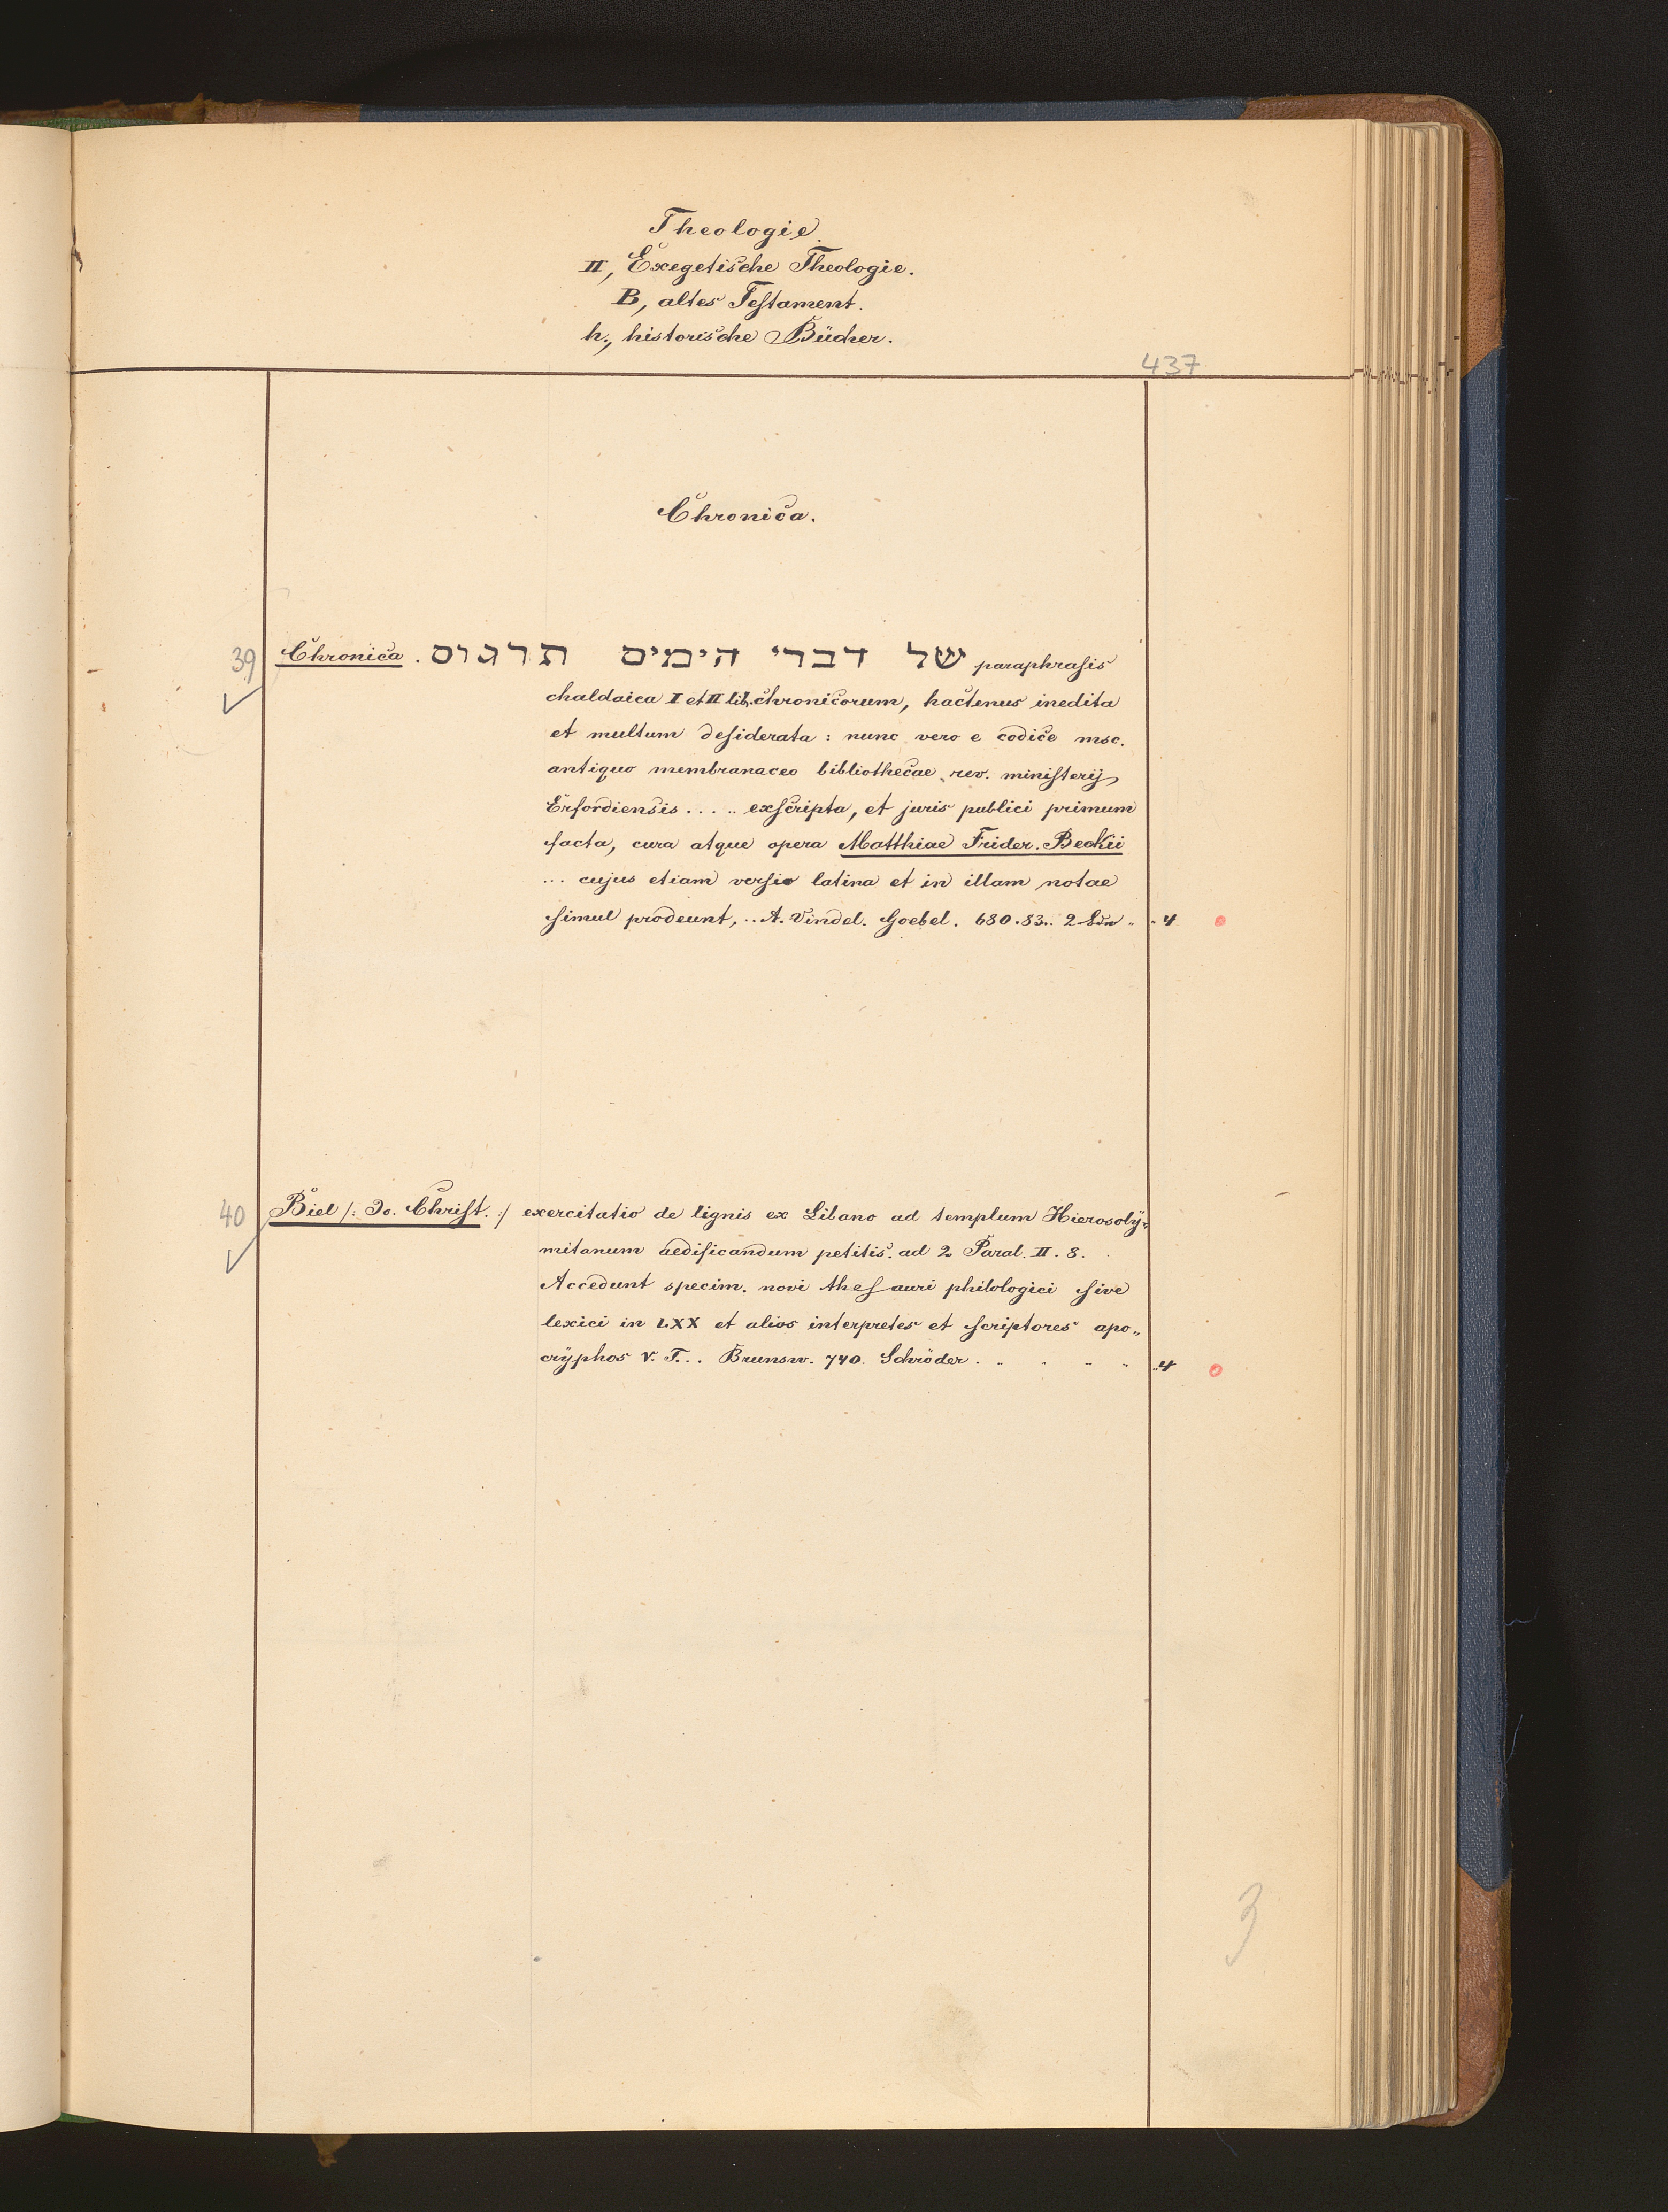 Theologie
II, Exegetische Theologie.
B, altes Testament.
h., historische Bücher.
437
Chronica.
39 Chronica. תרגום של דברי הימים paraphrasis
chaldaica I et II lib. chronicorum, hactenus inedita
et multum desiderata : nunc vero e codice msc.
antiquo membranaceo bibliothecae rev. ministerij
Erfordiensis . . . . . exscripta, et juris publici primum
facta, cura atque opera Matthiae Frider. Beckii
... cujus etiam versio latina et in illam notae
simul prodeunt, .. A. Vindel. Goebel. 680.83.. 2 Bde .. 4
40 Biel /: Jo. Christ. :/ exercitatio de lignis ex Libano ad templum Hierosoly„
mitanum aedificandum petitis. ad 2 Paral. II. 8.
Accedunt specim. novi thesauri philologici sive
lexici in LXX et alios interpretes et scriptores apo„
cryphos V. T. . . Brunsw. 740. Schröder. . . . . . 4
3